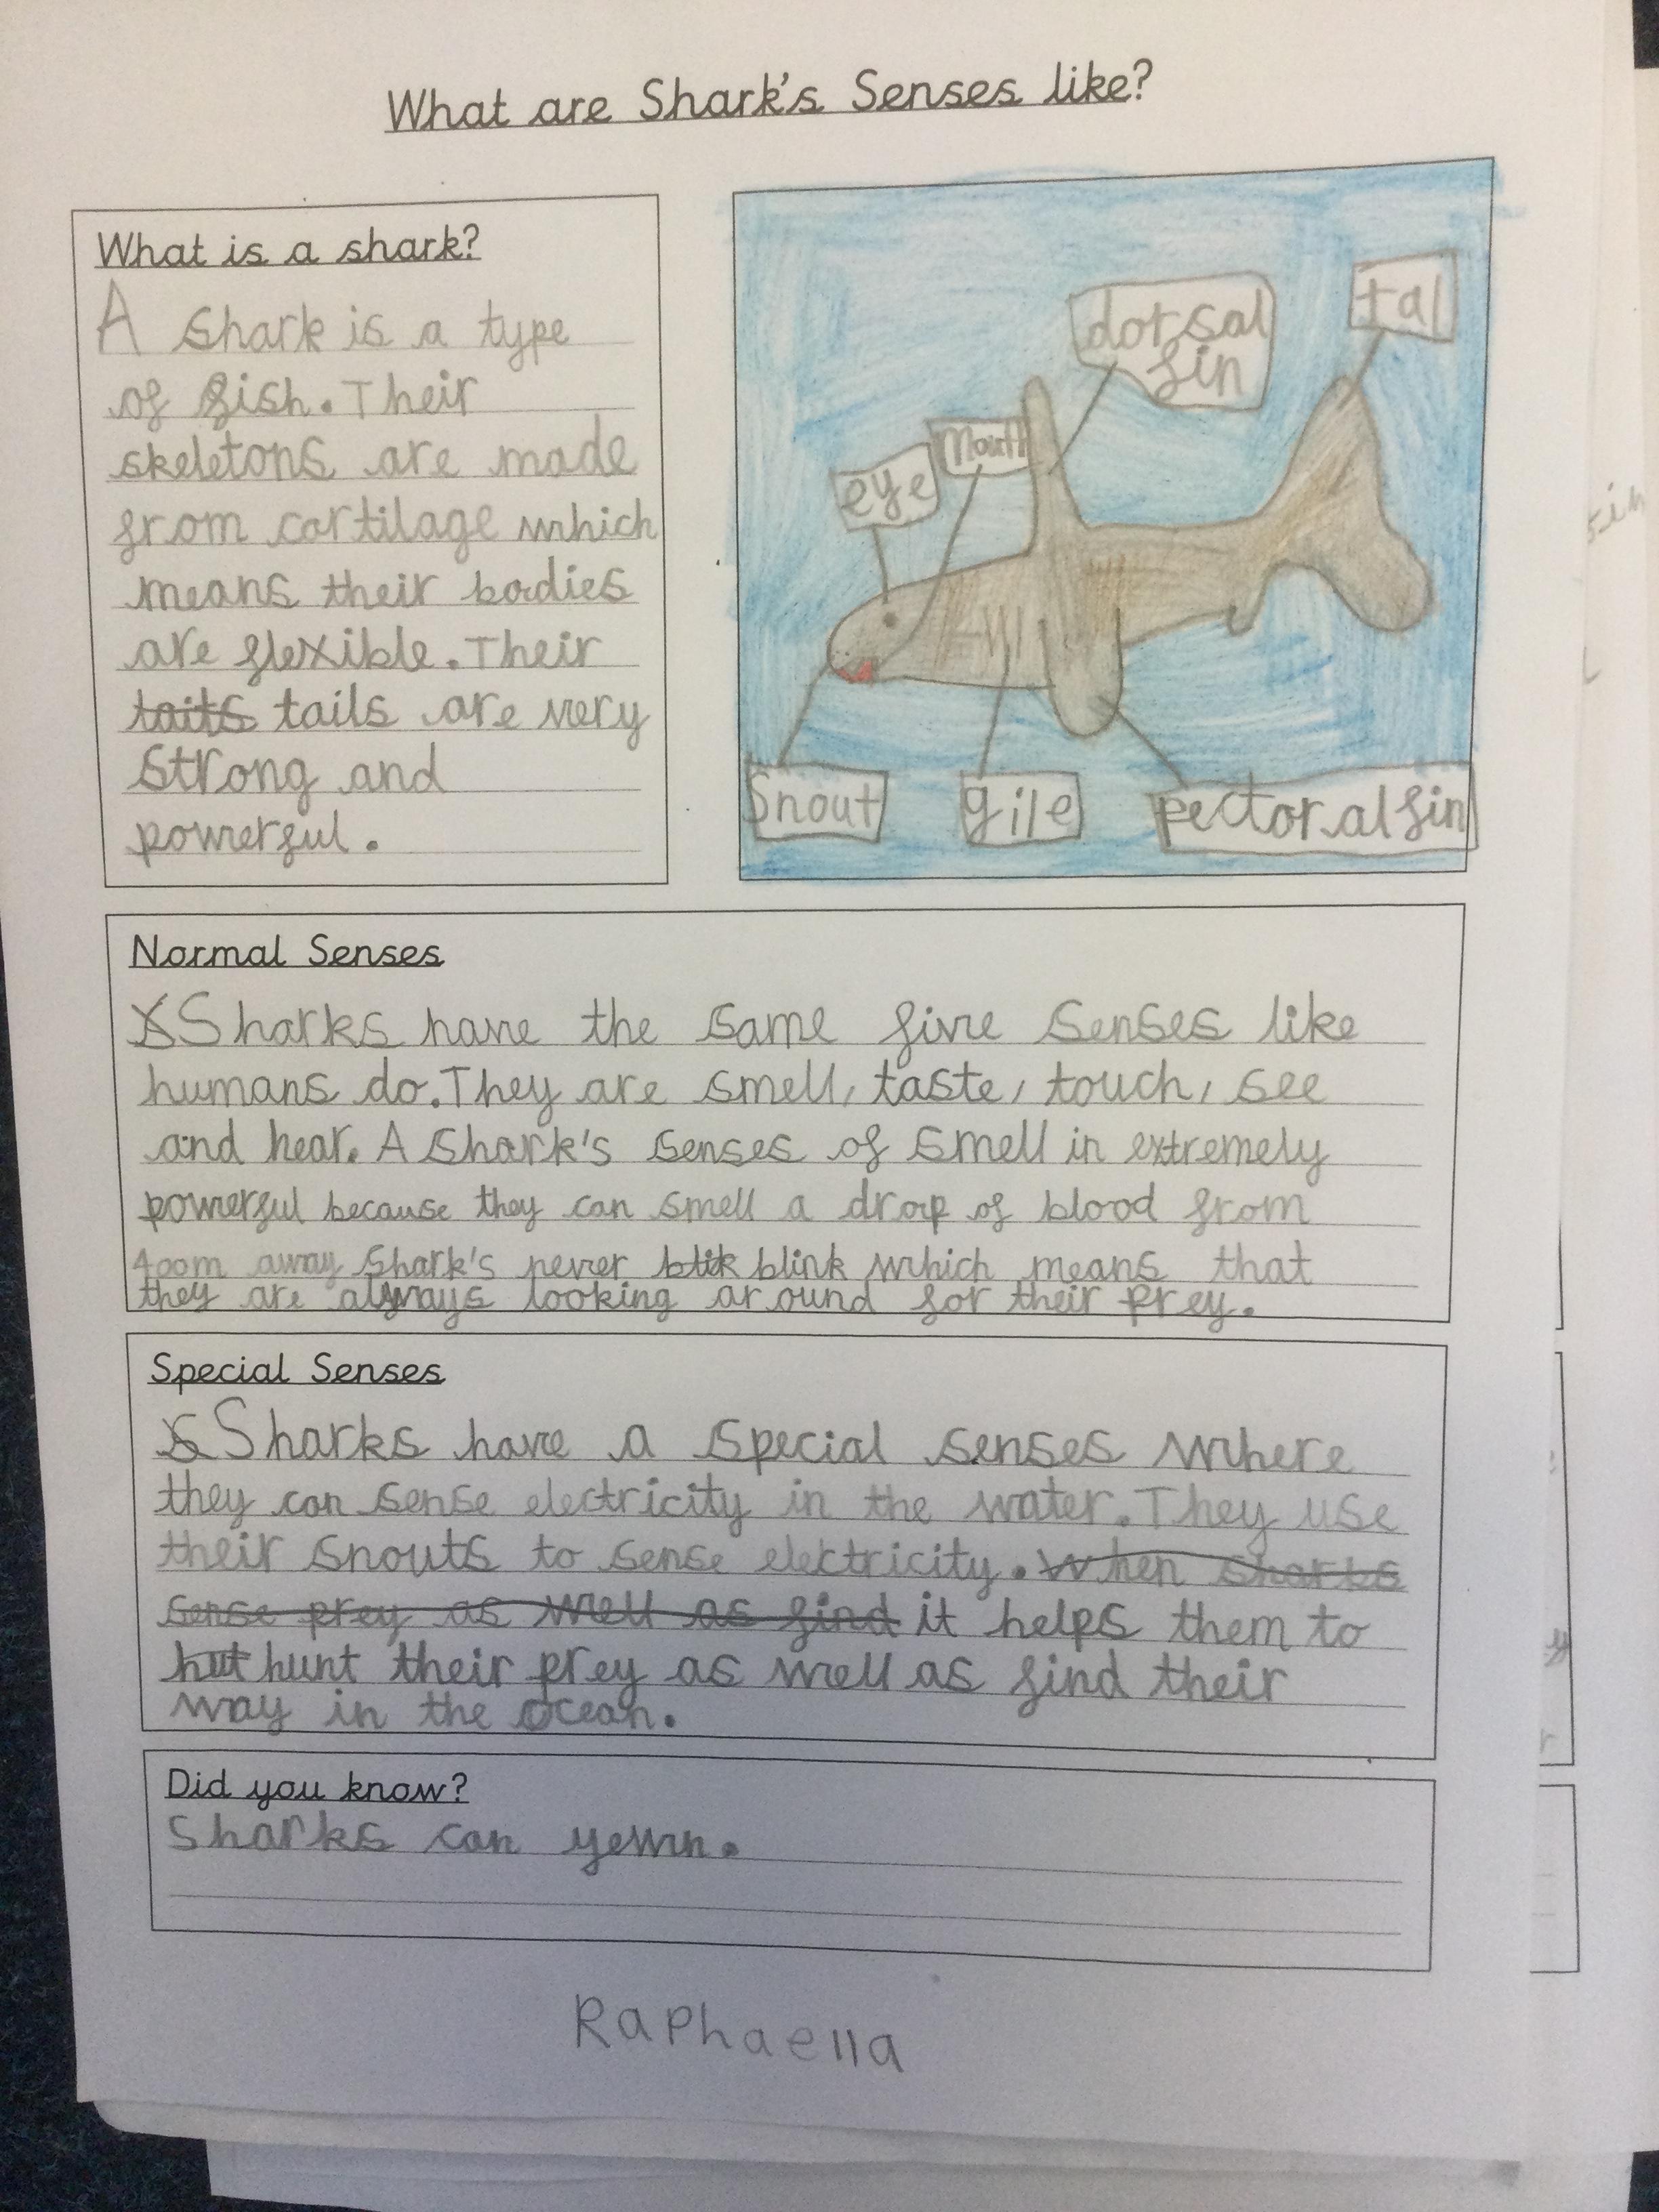 What are Shark's Senses like?
What is a shark?
A shark is a type
of fish. Their
skeletons are made
from cartilage which
means their bodies
are flexible. Their
taits tails are very
strong and
powerful.
dorsal
fin
tal
mouth
eye
Snout
gile
pectoral fin
Normal Senses
s Sharks have the same five senses like
humans do. They are smell, taste, touch, see
and hear. A shark's senses of smell in extremely
powerful because they can smell a drop of blood from
400m away Shark's never blik blink which means that
they are always looking around for their prey.
Special Senses
s Sharks have a special senses where
they can sense electricity in the water. They use
their snouts to sense electricity. When sharks
sense prey as well as find it helps them to
hut hunt their prey as well as find their
way in the ocean.
Did you know?
Sharks can yewn.
Raphaella